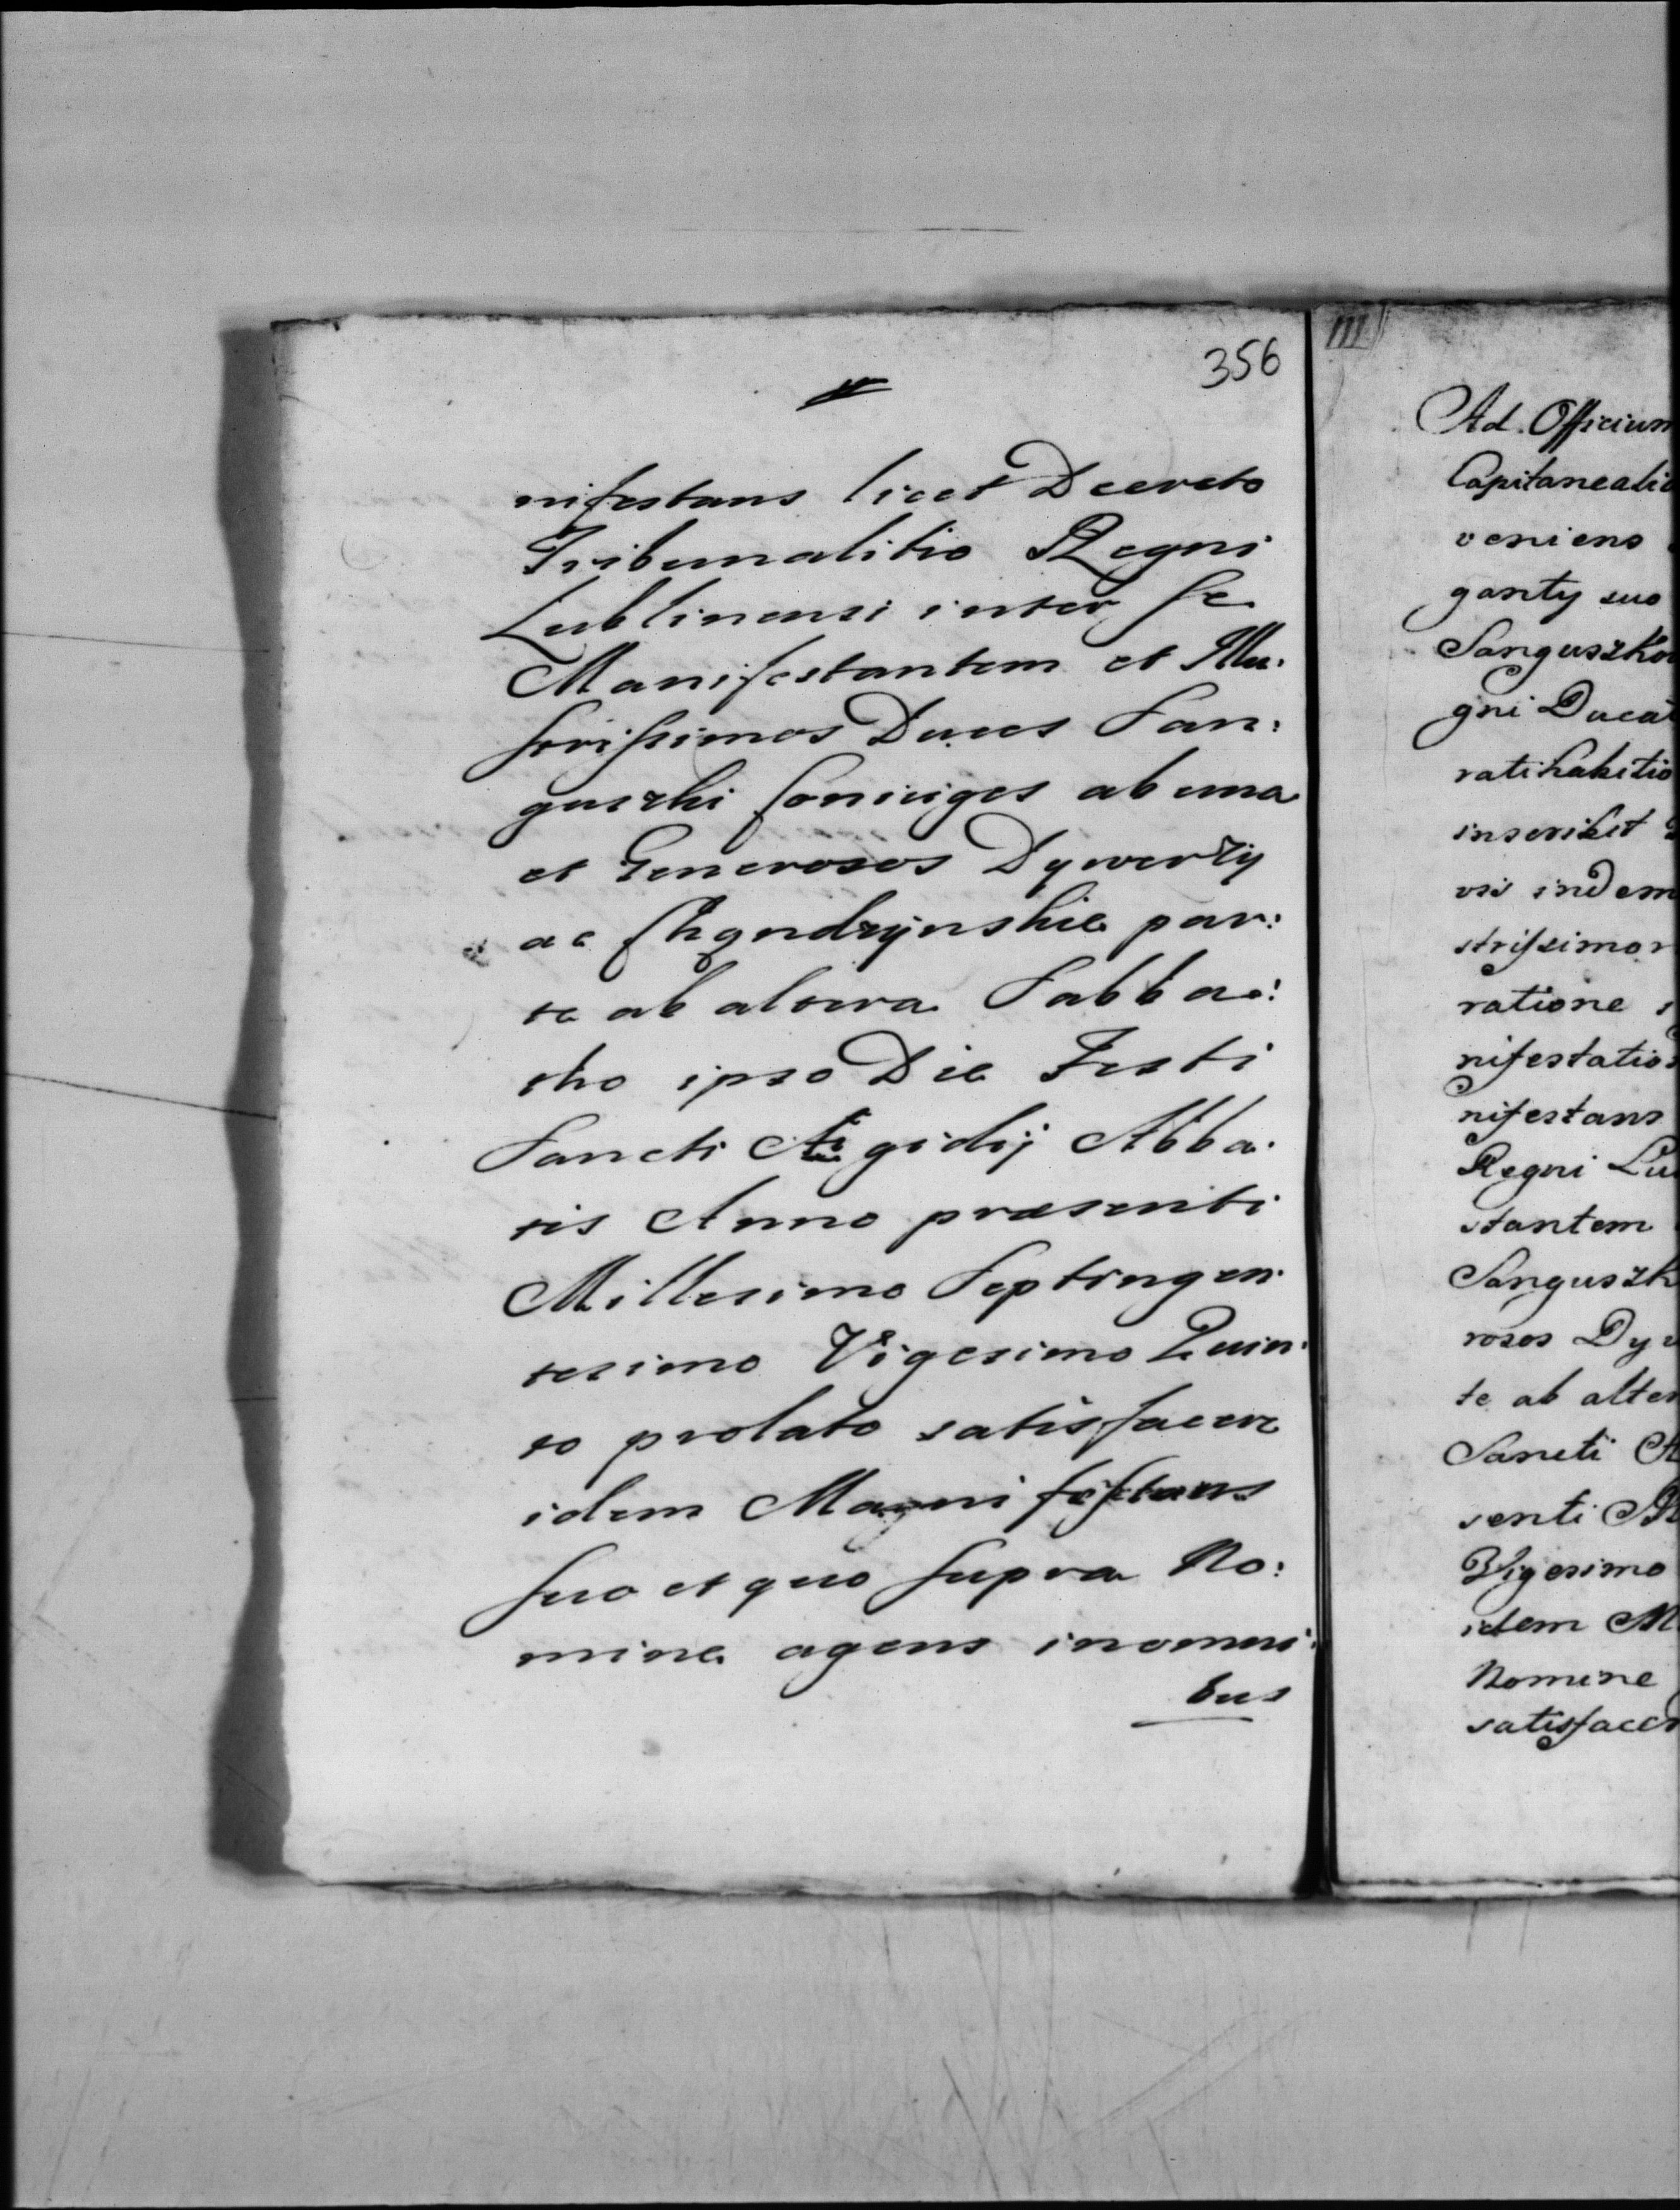 356
nifestans licet Decreto
Tribunalitio Regni
Lublinensi inter se
Manifestantem et Illu:
strissimos Duces San:
guszki Coniuges ab una
et Generosos Dywerty
ac par:
te ab altera Sabba:
tho ipso Die Festi
Sancti Aegidij Abba:
tis Anno praesenti
Millesimo Septingen:
tesimo Vigesimo Quin:
to prolato satisfacere
idem Manifestans
suo et quo supra No:
mine agens in omni:
bus
III
Ad Officium
Capitanealis
veniens
ganty suo
Sanguszkow
gni Ducat
ratihabitio
inscribit
vsi indem
strissimor
ratione
nifestatio
nifestans
Regni Lu
stantem
Sanguszk
rosos Dyw
te ab alter
Sancti A
senti M
Vigesimo
idem M
Nomine
satisfacer